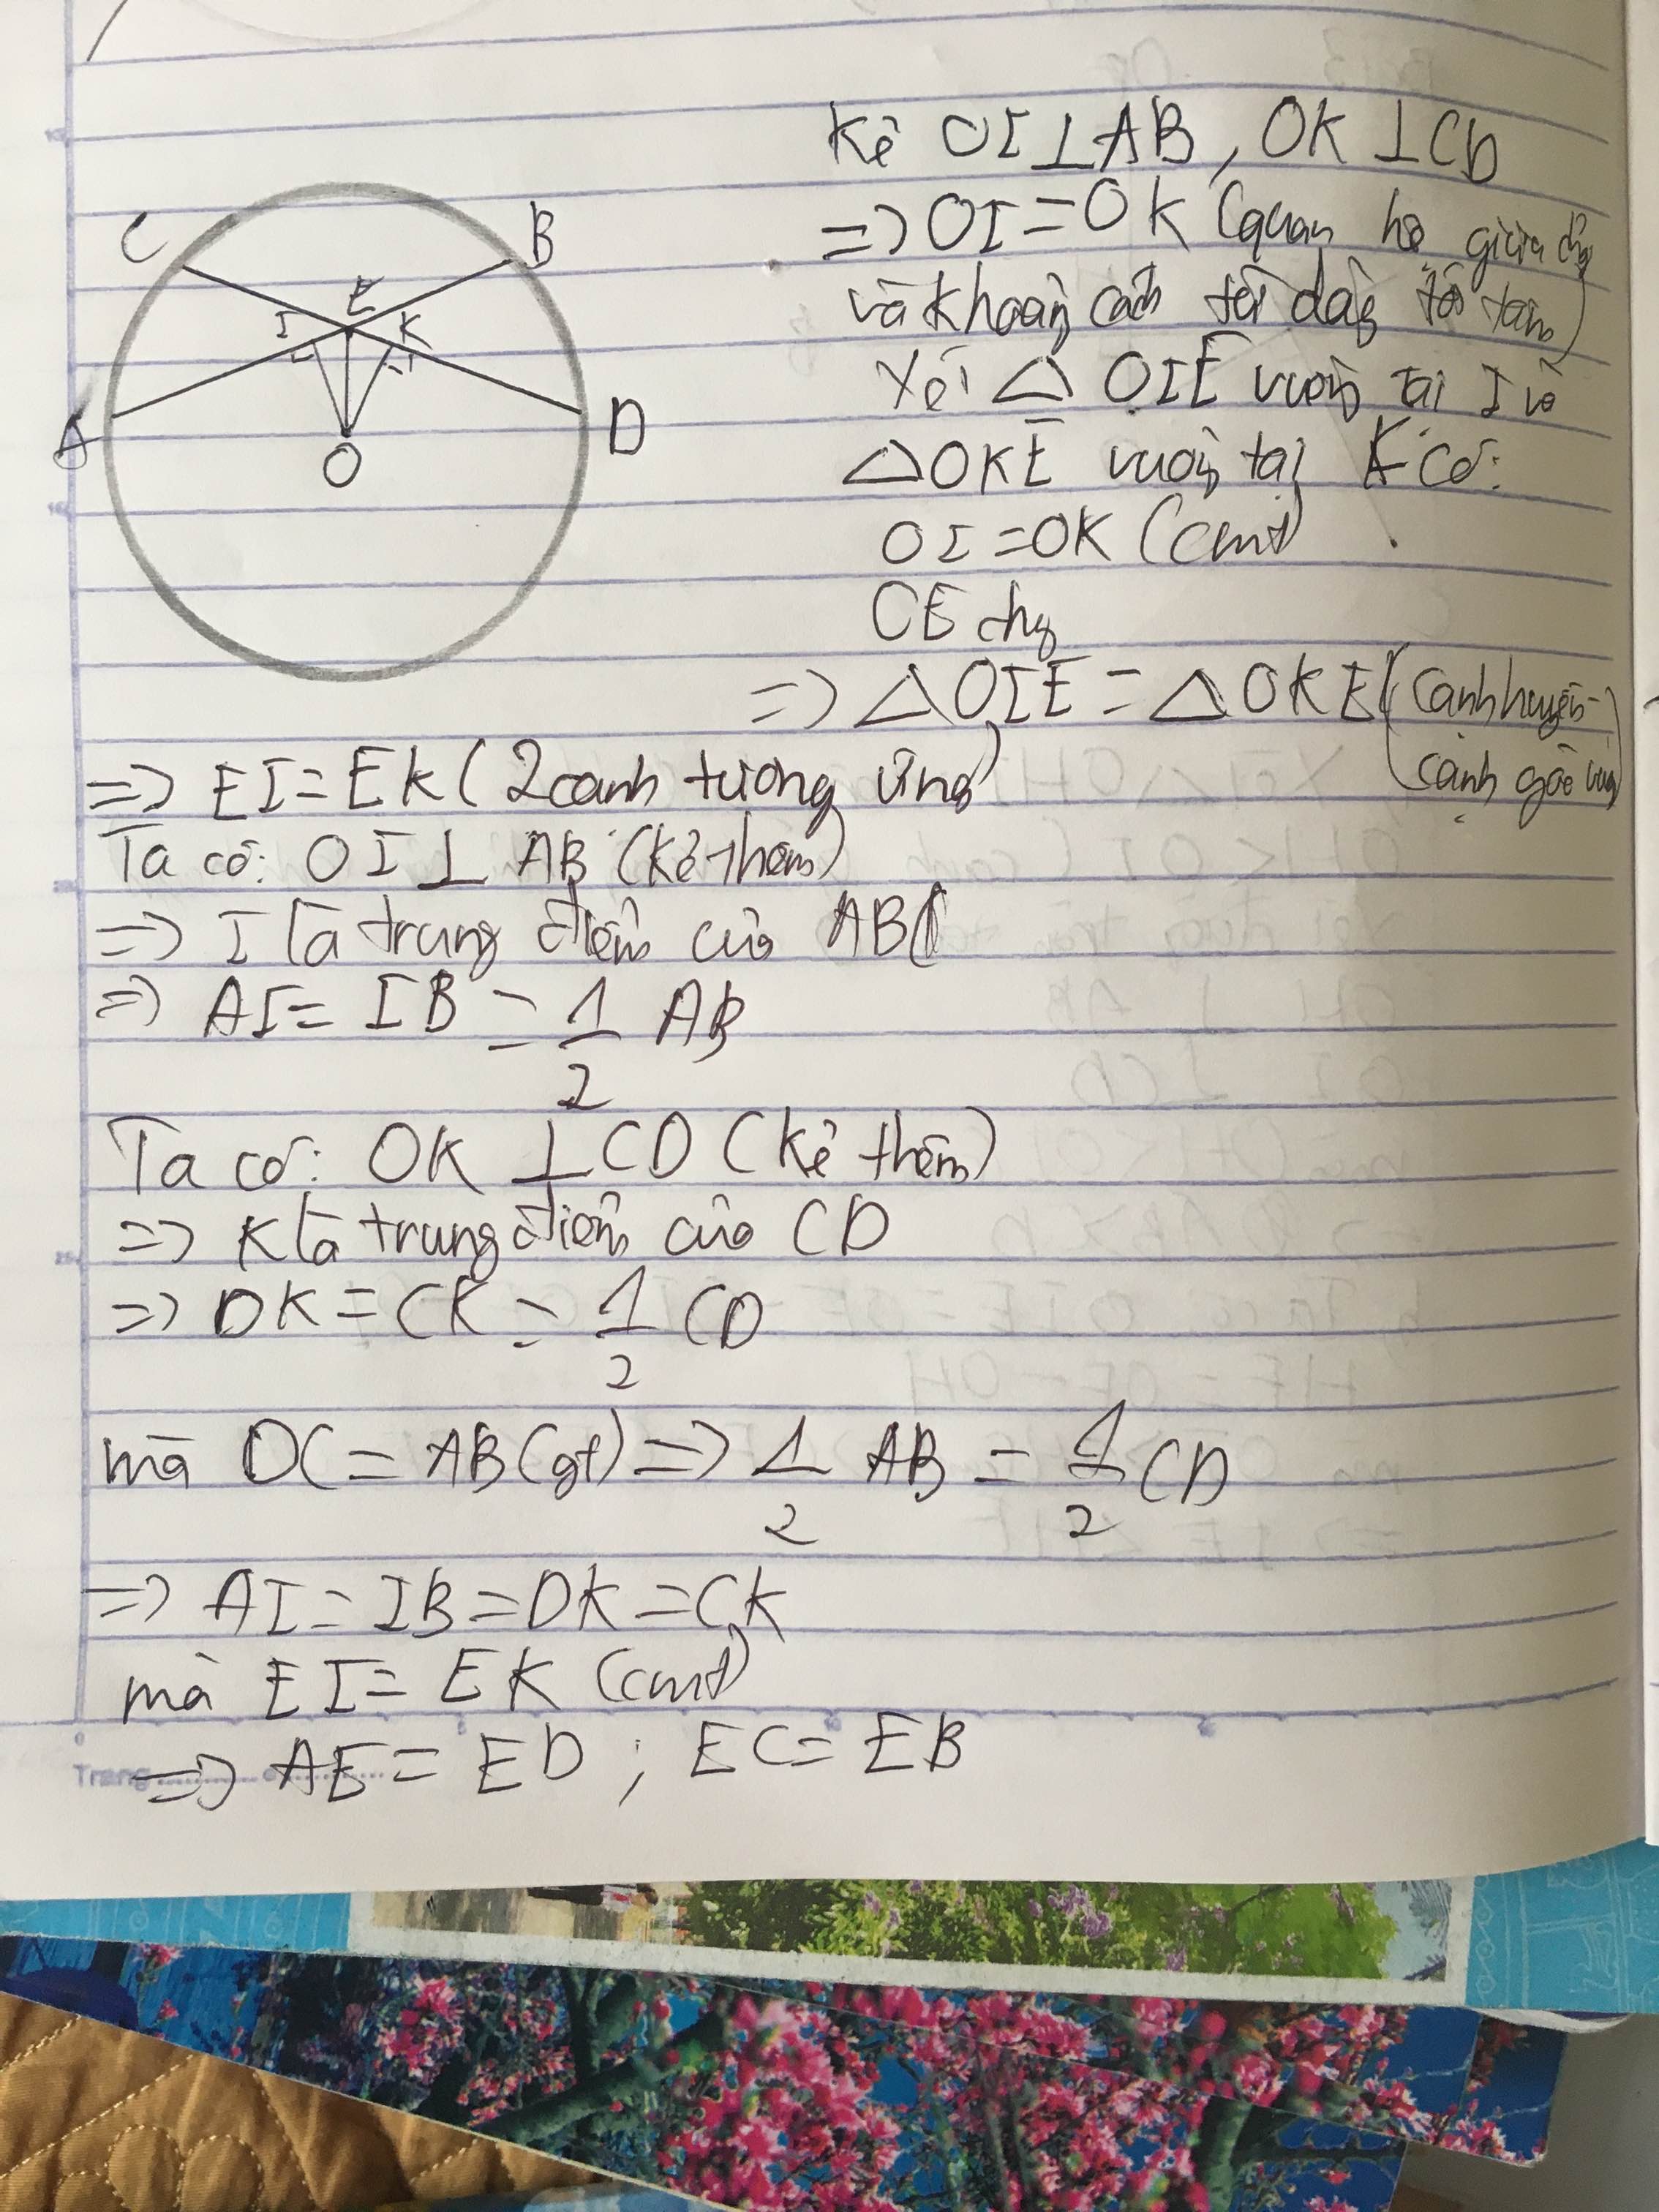 C
B
E
I
K
A
D
O
Kẻ OI⊥AB, OK⊥CD
=> OI=OK (quan hệ giữa
và khoảng cách từ dây tới tâm)
Xét △ OIE vuông tại I và
△OKE vuông tại K có:
OI=OK (cmt)
OE chg
=> △OIE = △OKE (cạnh huyền-
cạnh góc vuông)
=> EI=EK (2 cạnh tương ứng)
Ta có: OI⊥ AB (kẻ thêm)
=> I là trung điểm của AB
=> AI= IB = 1/2 AB
Ta có: OK ⊥CD (kẻ thêm)
=> K là trung điểm của CD
=> DK=CK = 1/2 CD
mà DC=AB(gt) => 1/2 AB = 1/2 CD
=> AI=IB=DK=CK
mà EI= EK (cmt)
Trang
=> AE= ED ; EC= EB